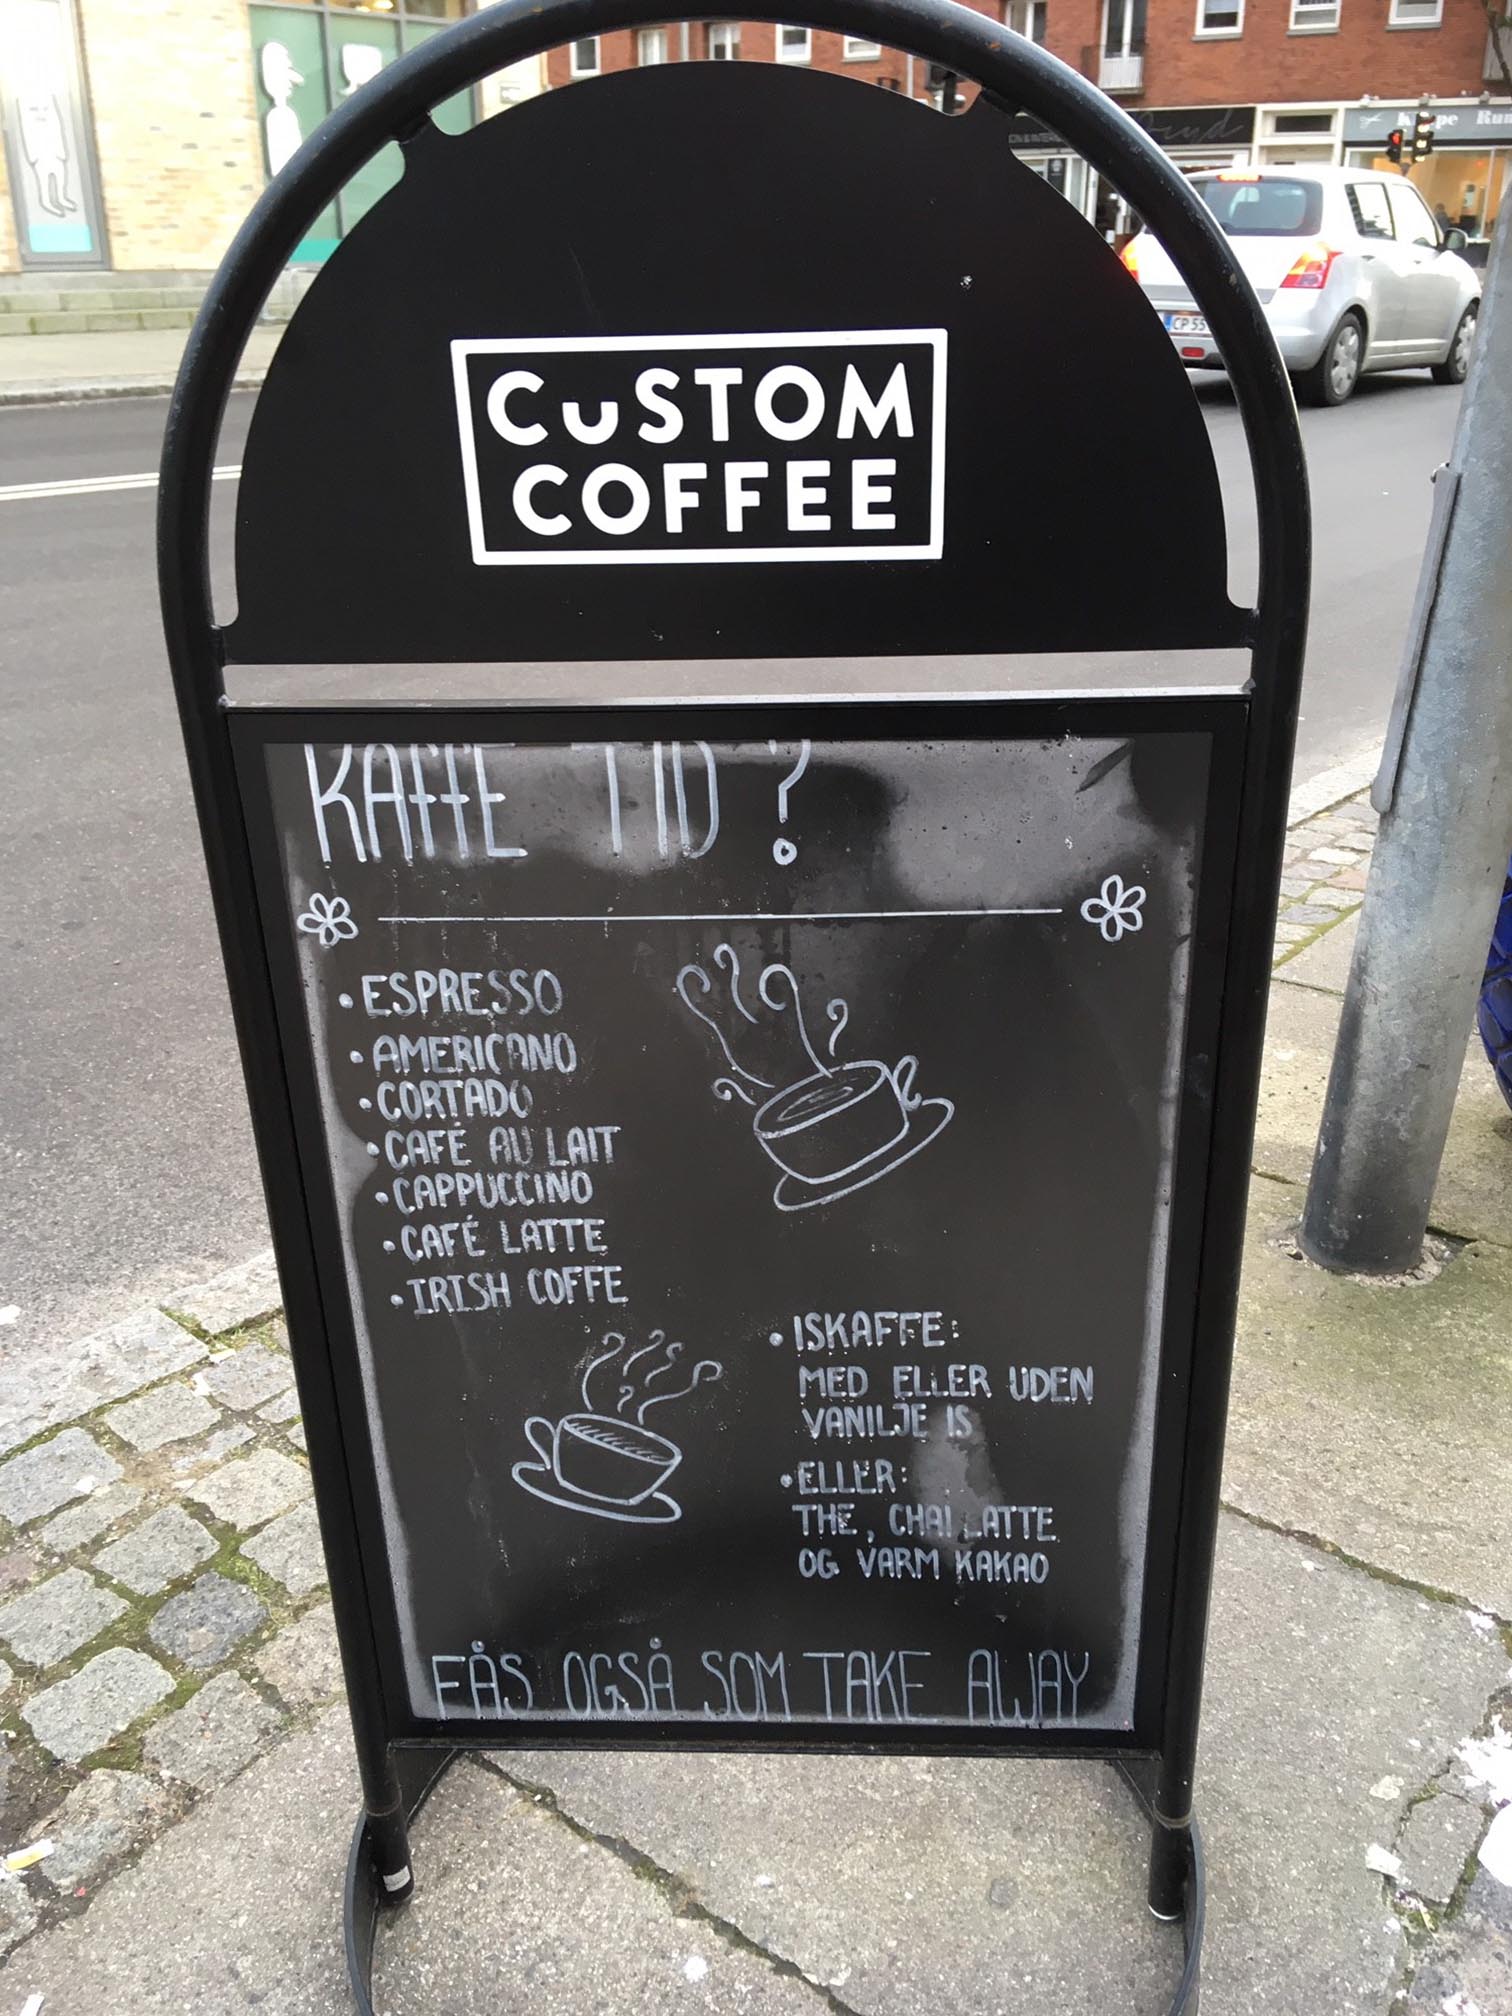 CuSTOM
COFFEE
KAFFE TID?
• ESPRESSO
• AMERICANO
• CORTADO
• CAFÉ AU LAIT
• CAPPUCCINO
• CAFÉ LATTE
• IRISH COFFE
• ISKAFFE:
MED ELLER UDEN
VANILJE IS
• ELLER:
THE, CHAI LATTE
OG VARM KAKAO
FÅS OGSÅ SOM TAKE AWAY
CP 55